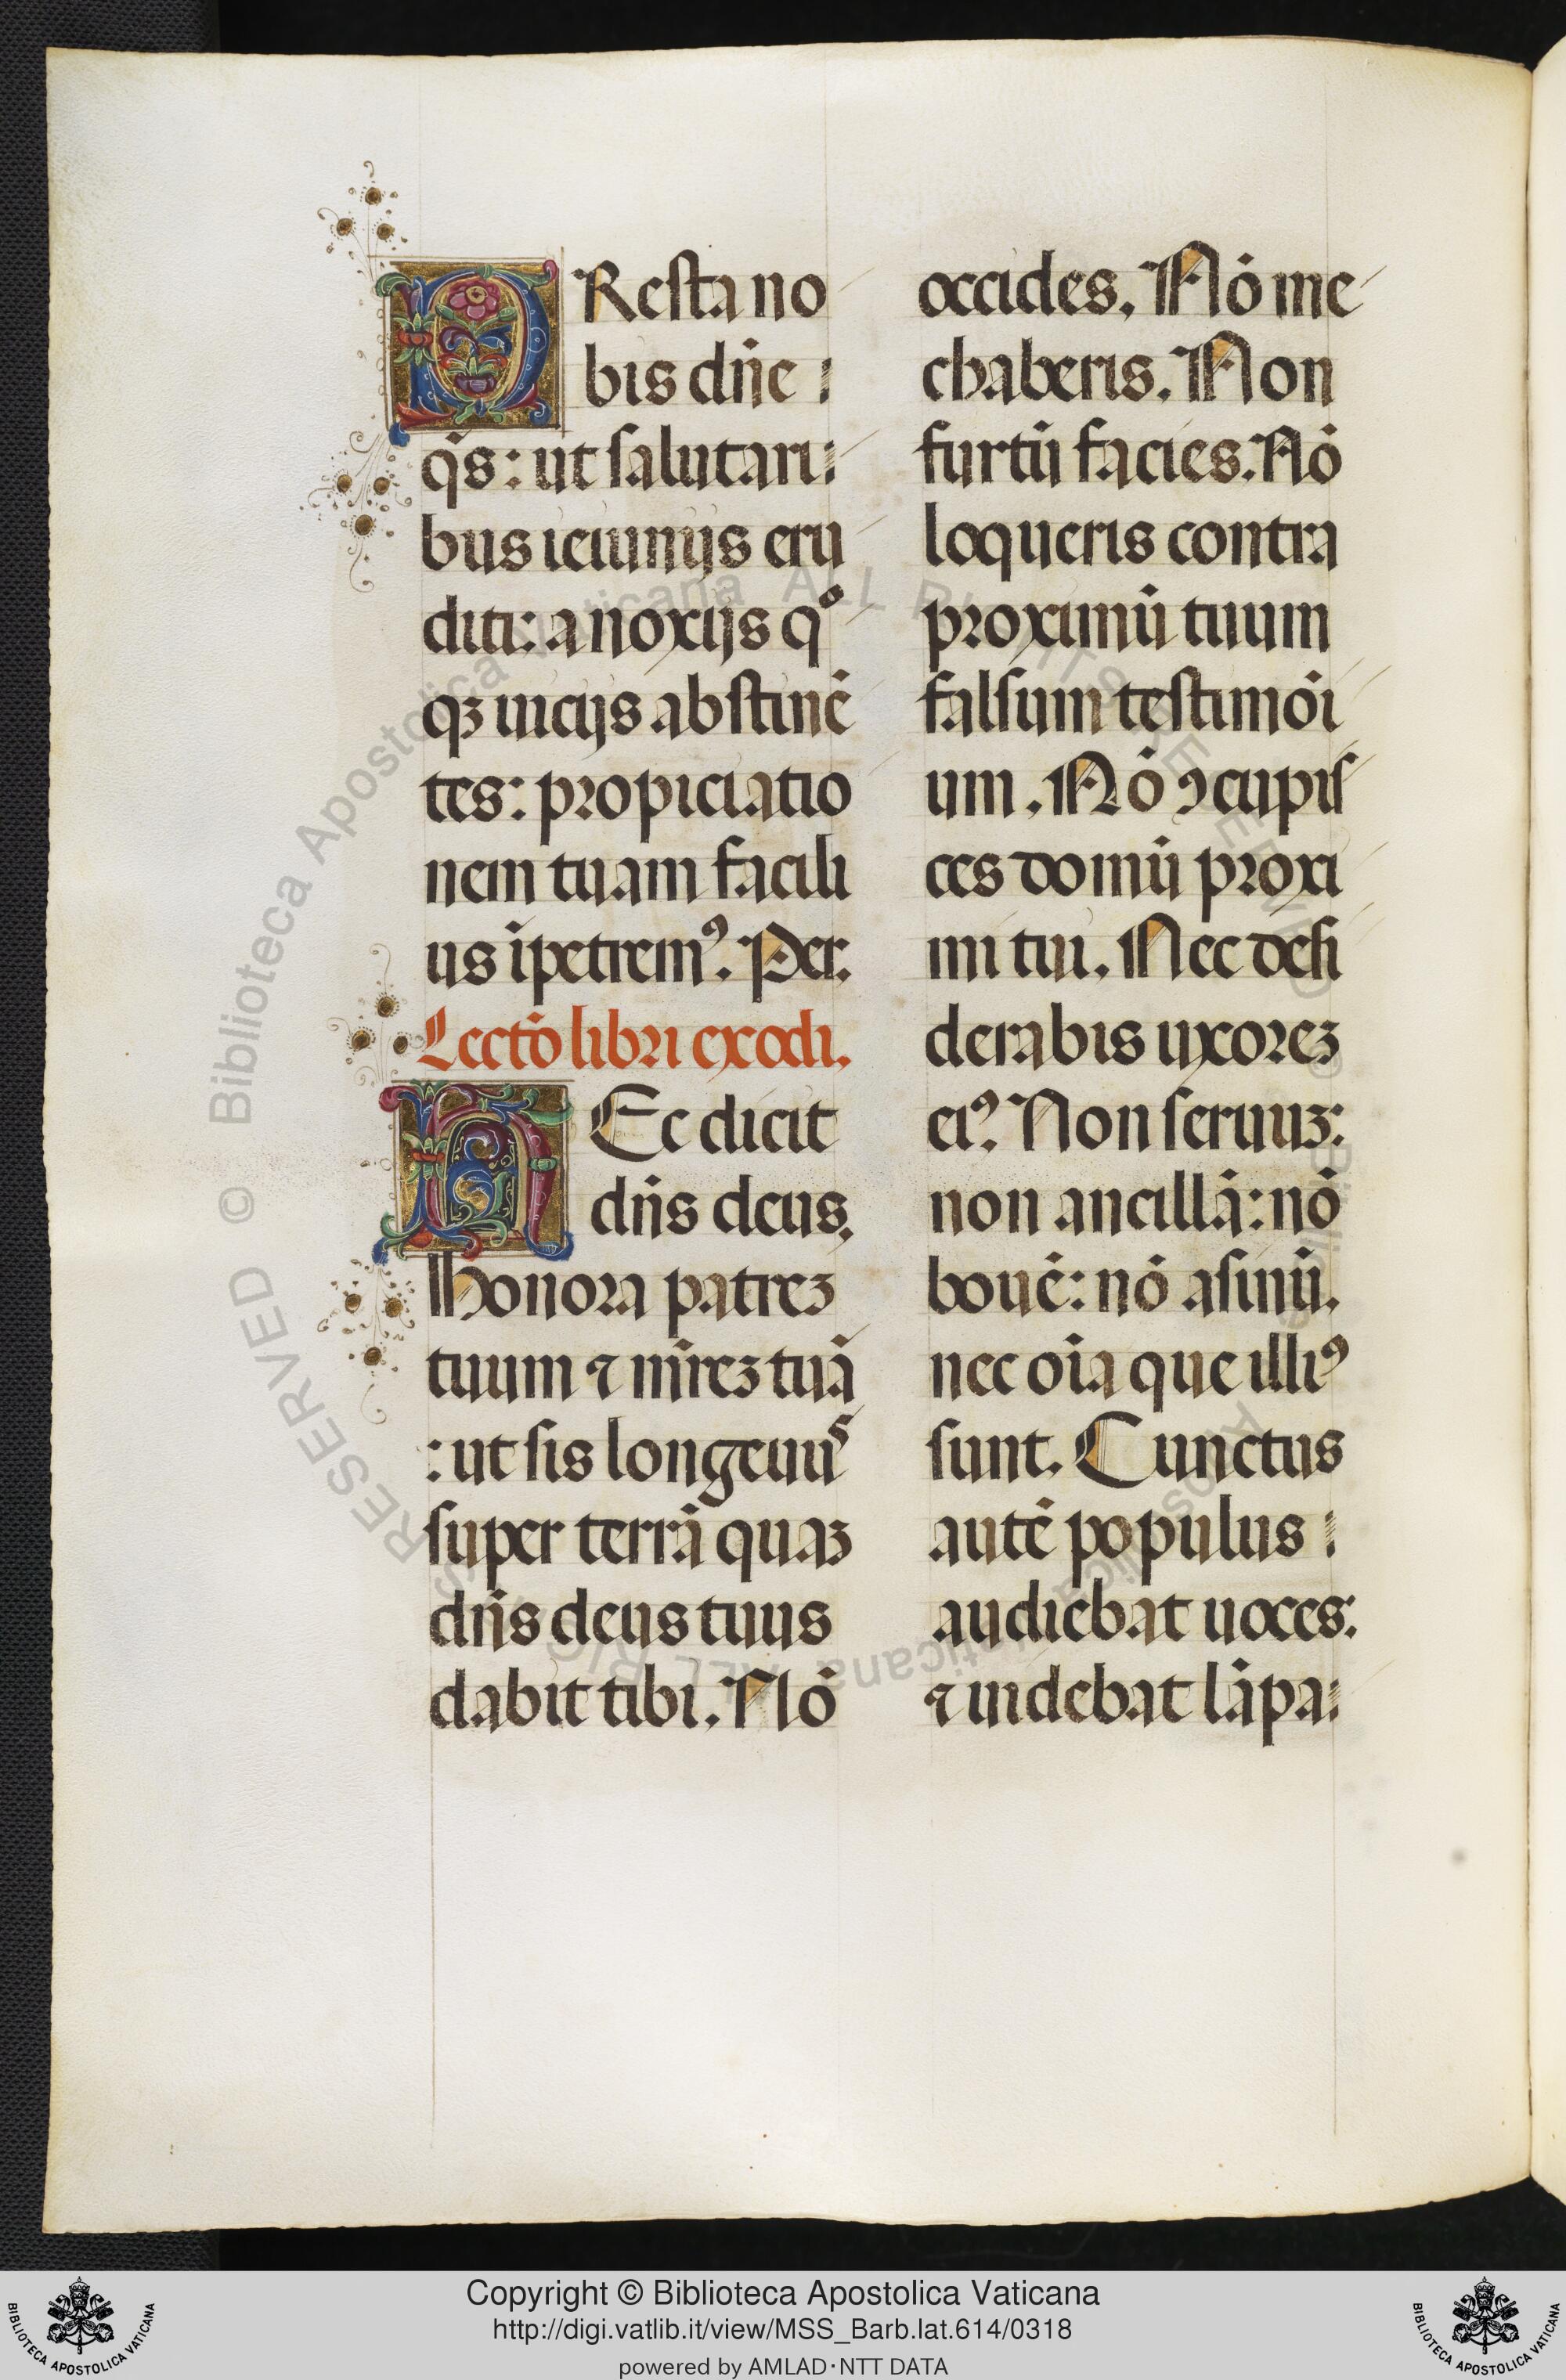 PResta no
bis dn̄e
qs̄: ut salutari
bus ieiunijs eru
diti: a noxijs qͦ
qꝫ uicijs abstinē
tes: propiciatio
nem tuam facili
us īpetremꝰ. Per.
Lectō libri exodi.
HEc dicit
dn̄s deus.
Honora patreꝫ
tuum ⁊ mr̄eꝫ tuā
: ut sis longeuuˢ
super terrā quaꝫ
dn̄s deus tuus
dabit tibi. Nō
occides. Nō me
chaberis. Non
furtū facies. Nō
loqueris contra
proximū tuum
falsum testimōi
um. Nō ꝯcupis
ces domū proxi
mi tui. Nec desi
derabis uxoreꝫ
eiꝰ. Non seruuꝫ:
non ancillā: nō
bouē: nō asinū.
nec oīa que illiꝰ
sunt. Cunctus
autē populus
audiebat uoces:
⁊ uidebat lāpa
© Biblioteca Apostolica Vaticana ALL RIGHTS RESERVED
Copyright © Biblioteca Apostolica Vaticana
http://digi.vatlib.it/view/MSS_Barb.lat.614/0318
powered by AMLAD·NTT DATA
BIBLIOTECA APOSTOLICA VATICANA
BIBLIOTECA APOSTOLICA VATICANA